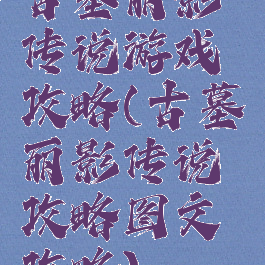 古墓丽影
传说游戏
攻略(古墓
丽影传说
攻略图文
攻略)